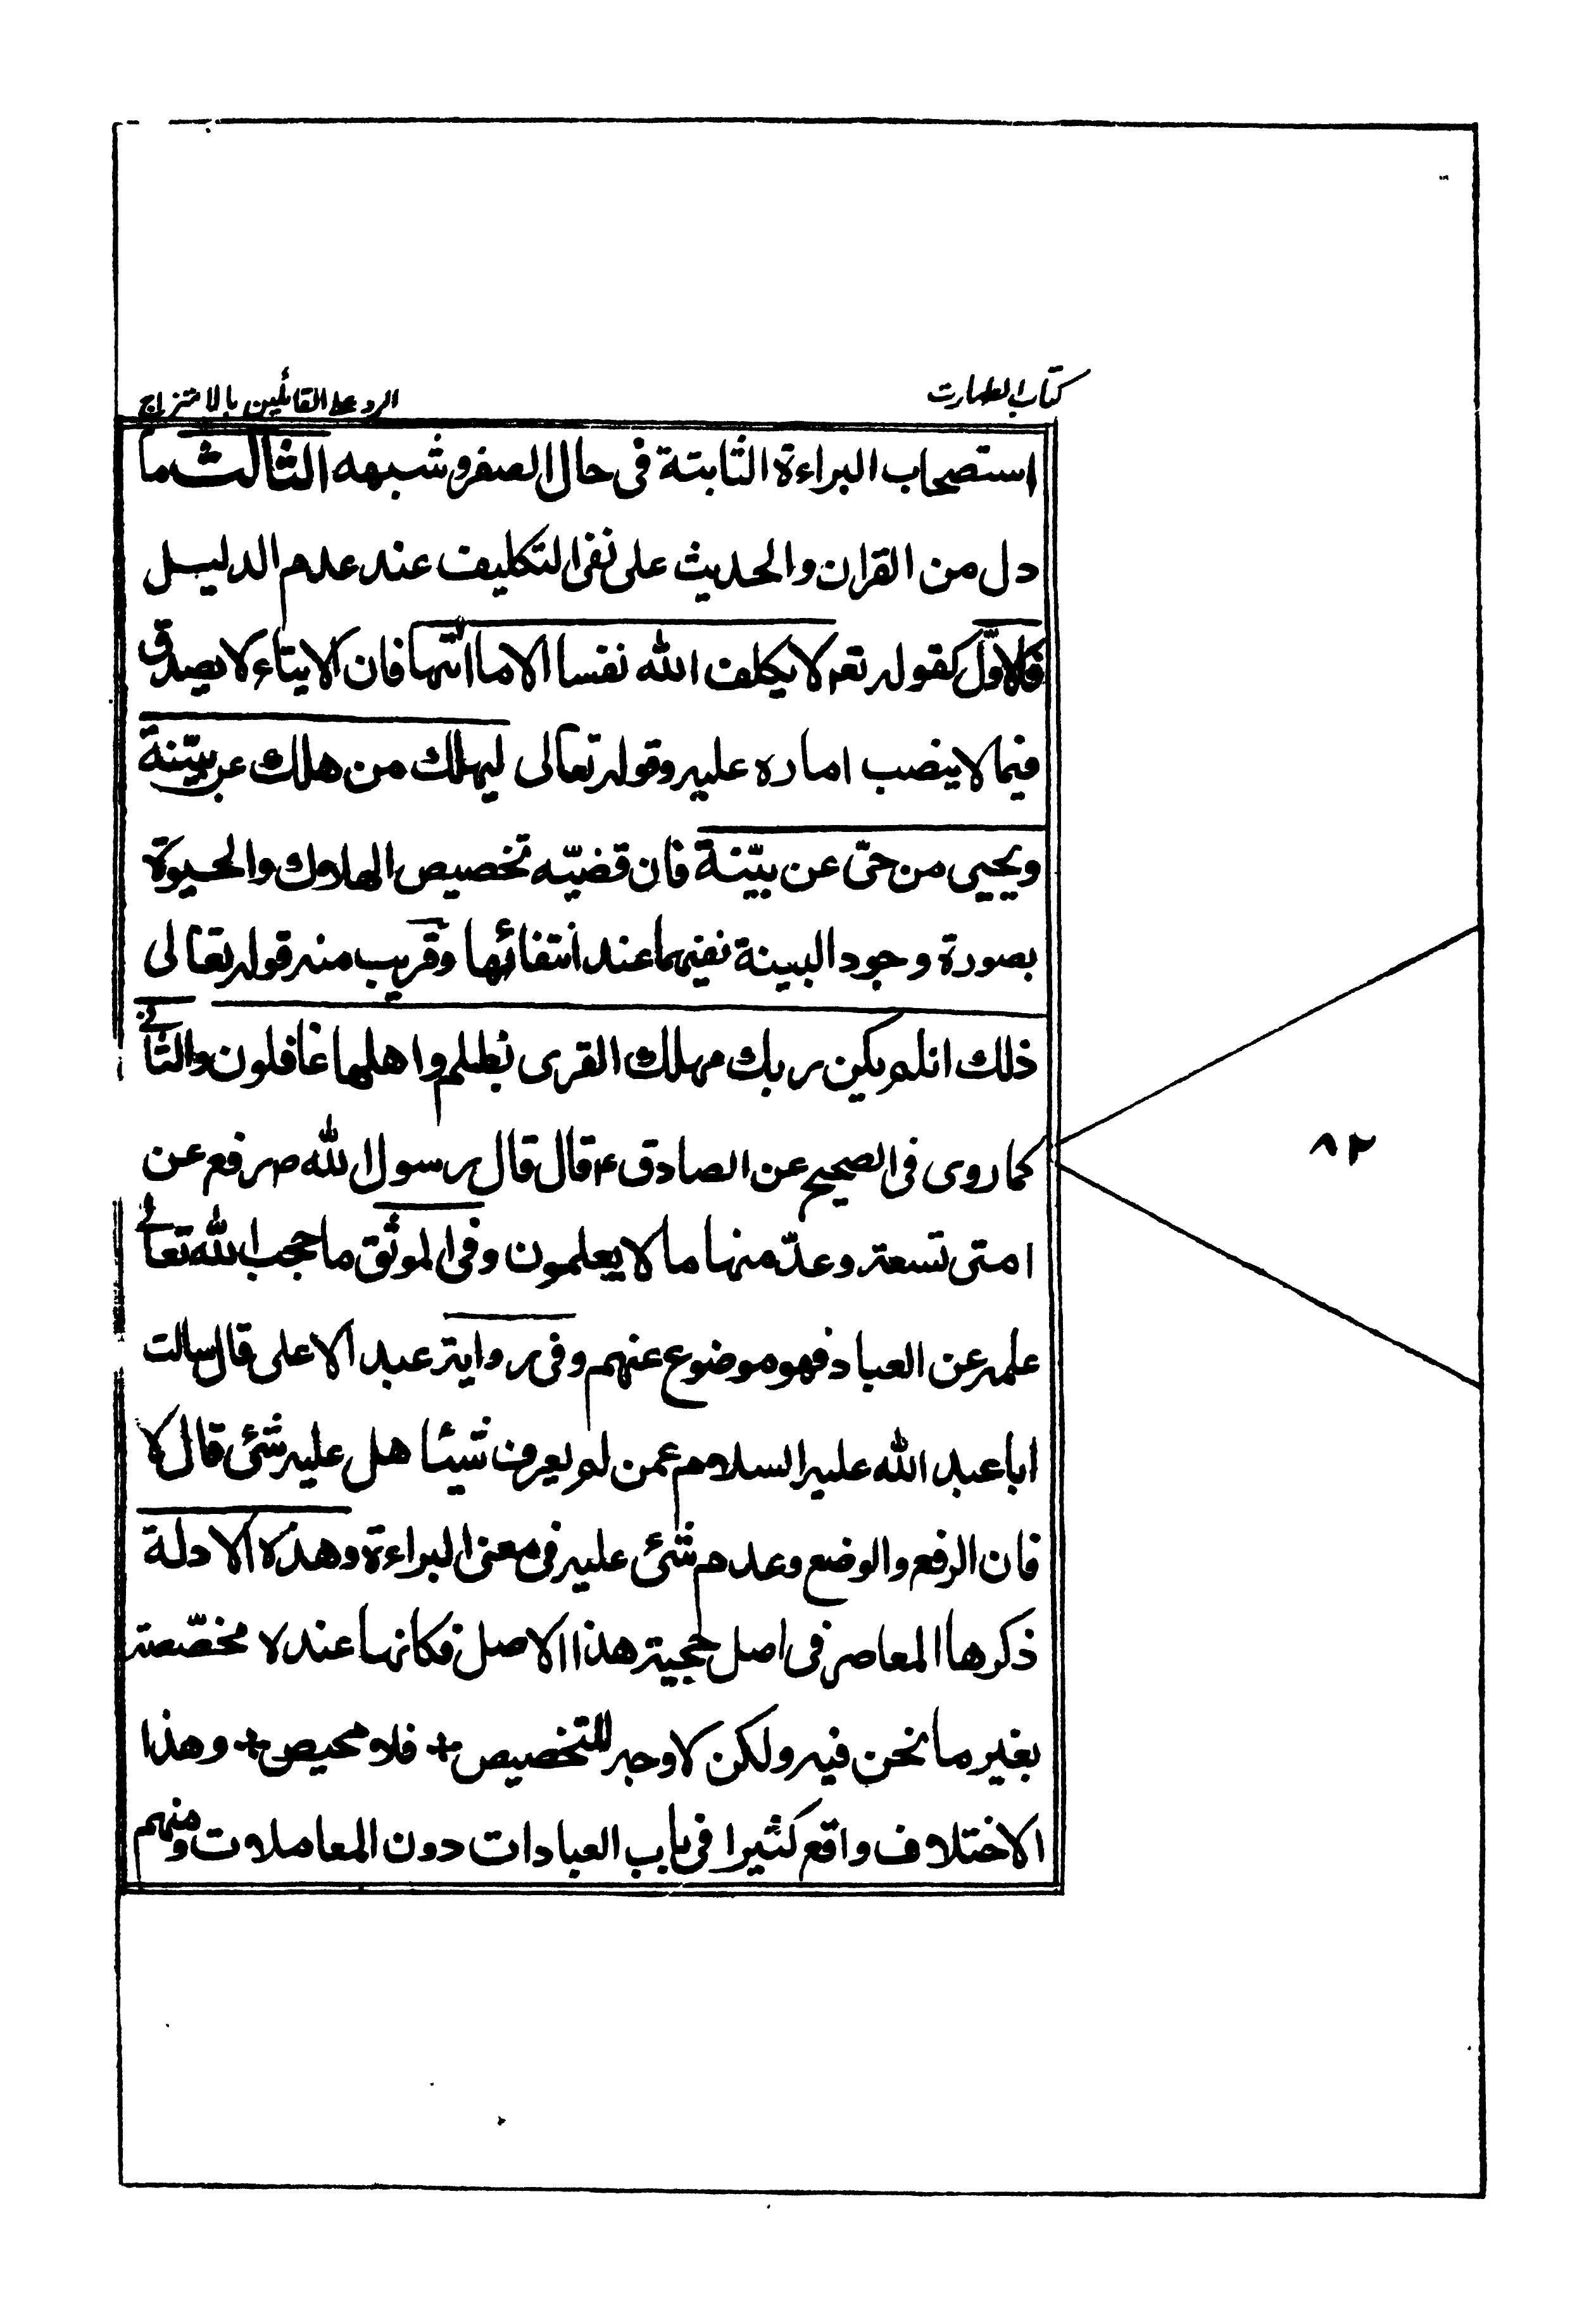 كتاب الطهارت
الرد على القائلين بالامتزاج
استصحاب البراءة الثابتة فى حال الصغر وشبهه الثالث ما
دل من القران والحديث على نفى التكليف عند عدم الدليل
فالاوّل كقوله تعم لا يكلف الله نفسا الا ما اتٰها فان الايتاء لا يصدق
فيما لا ينصب اماره عليه وقوله تعالى ليهلك من هلك عن بيّنة
ويحيى من حىّ عن بيّنة فان قضيّه تخصيص الهلاك والحيوة
بصورة وجود البينة نفيهما عند انتفائها وقريب منه قوله تعالى
ذلك ان لم يكن ربك مهلك القرى بظلم واهلها غافلون والثانى
كما روى فى الصحيح عن الصادق ع قال قال رسول الله ص رفع عن
امتى تسعة وعدّ منها ما لا يعلمون وفى الموثق ما حجب الله تعالى
علمه عن العباد فهو موضوع عنهم وفى رواية عبد الاعلى قال سالت
ابا عبد الله عليه السلام عمن لم يعرف شيئا هل عليه شئ قال لا
فان الرفع والوضع وعدم شئ عليه فى معنى البراءة وهذه الادلة
ذكرها المعاصر فى اصل حجية هذا الاصل فكانها عنده مخصّصة
بغير ما نحن فيه ولكن لا وجه للتخصيص + فلا محيص + وهذا
الاختلاف واقع كثيرا فى باب العبادات دون المعاملات ومنهم
٨٢